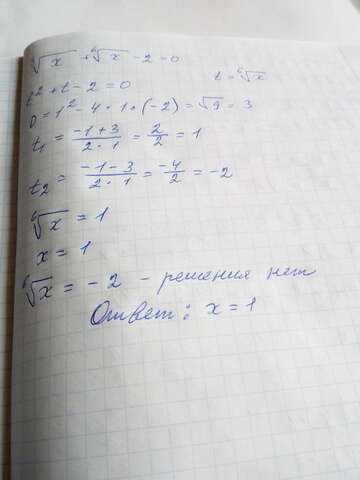 ³√x + ⁶√x - 2 = 0
t = ⁶√x
t² + t - 2 = 0
D = 1² - 4 · 1 · (-2) = √9 = 3
t₁ = (-1 + 3)/(2 · 1) = 2/2 = 1
t₂ = (-1 - 3)/(2 · 1) = -4/2 = -2
⁶√x = 1
x = 1
⁶√x = -2 - решения нет
Ответ: x = 1